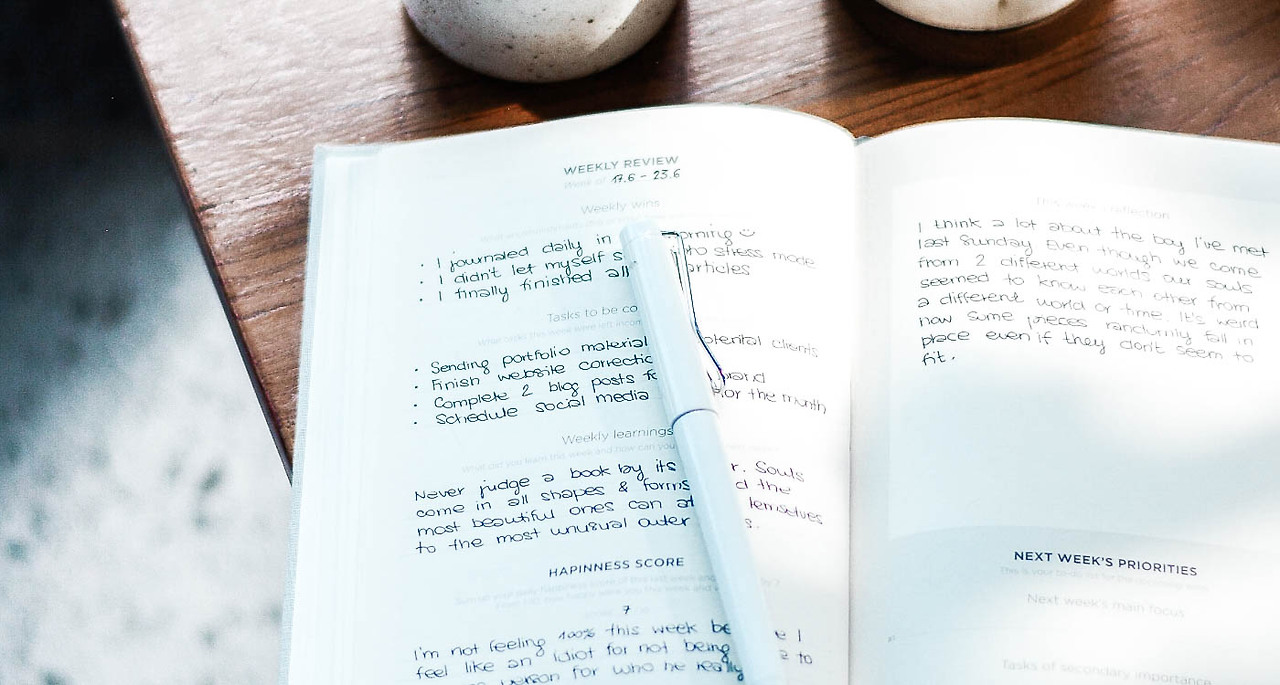 WEEKLY REVIEW
Week of 17.6 - 23.6
Weekly wins
• I journaled daily in orning
• I didn't let myself s to stress mode
• I finally finished all articles
Tasks to be co
What tasks this week were left incom
• Sending portfolio material potential clients
• Finish website correctio
• Complete 2 blog posts fo brand
• Schedule social media for the month
Weekly learnings
What did you learn this week and how can you
Never judge a book by its r. Souls
come in all shapes & forms d the
most beautiful ones can at themselves
to the most unusual outer s.
HAPINNESS SCORE
7
I'm not feeling 100% this week be e I
feel like an idiot for not being e to
person for who he really
This week's reflection
I think a lot about the boy I've met
last Sunday. Even though we come
from 2 different worlds our souls
seemed to know each other from
a different world or time. It's weird
how some pieces randomly fall in
place even if they don't seem to
fit.
NEXT WEEK'S PRIORITIES
This is your to-do list for the upcoming week
Next week's main focus
Tasks of secondary importance